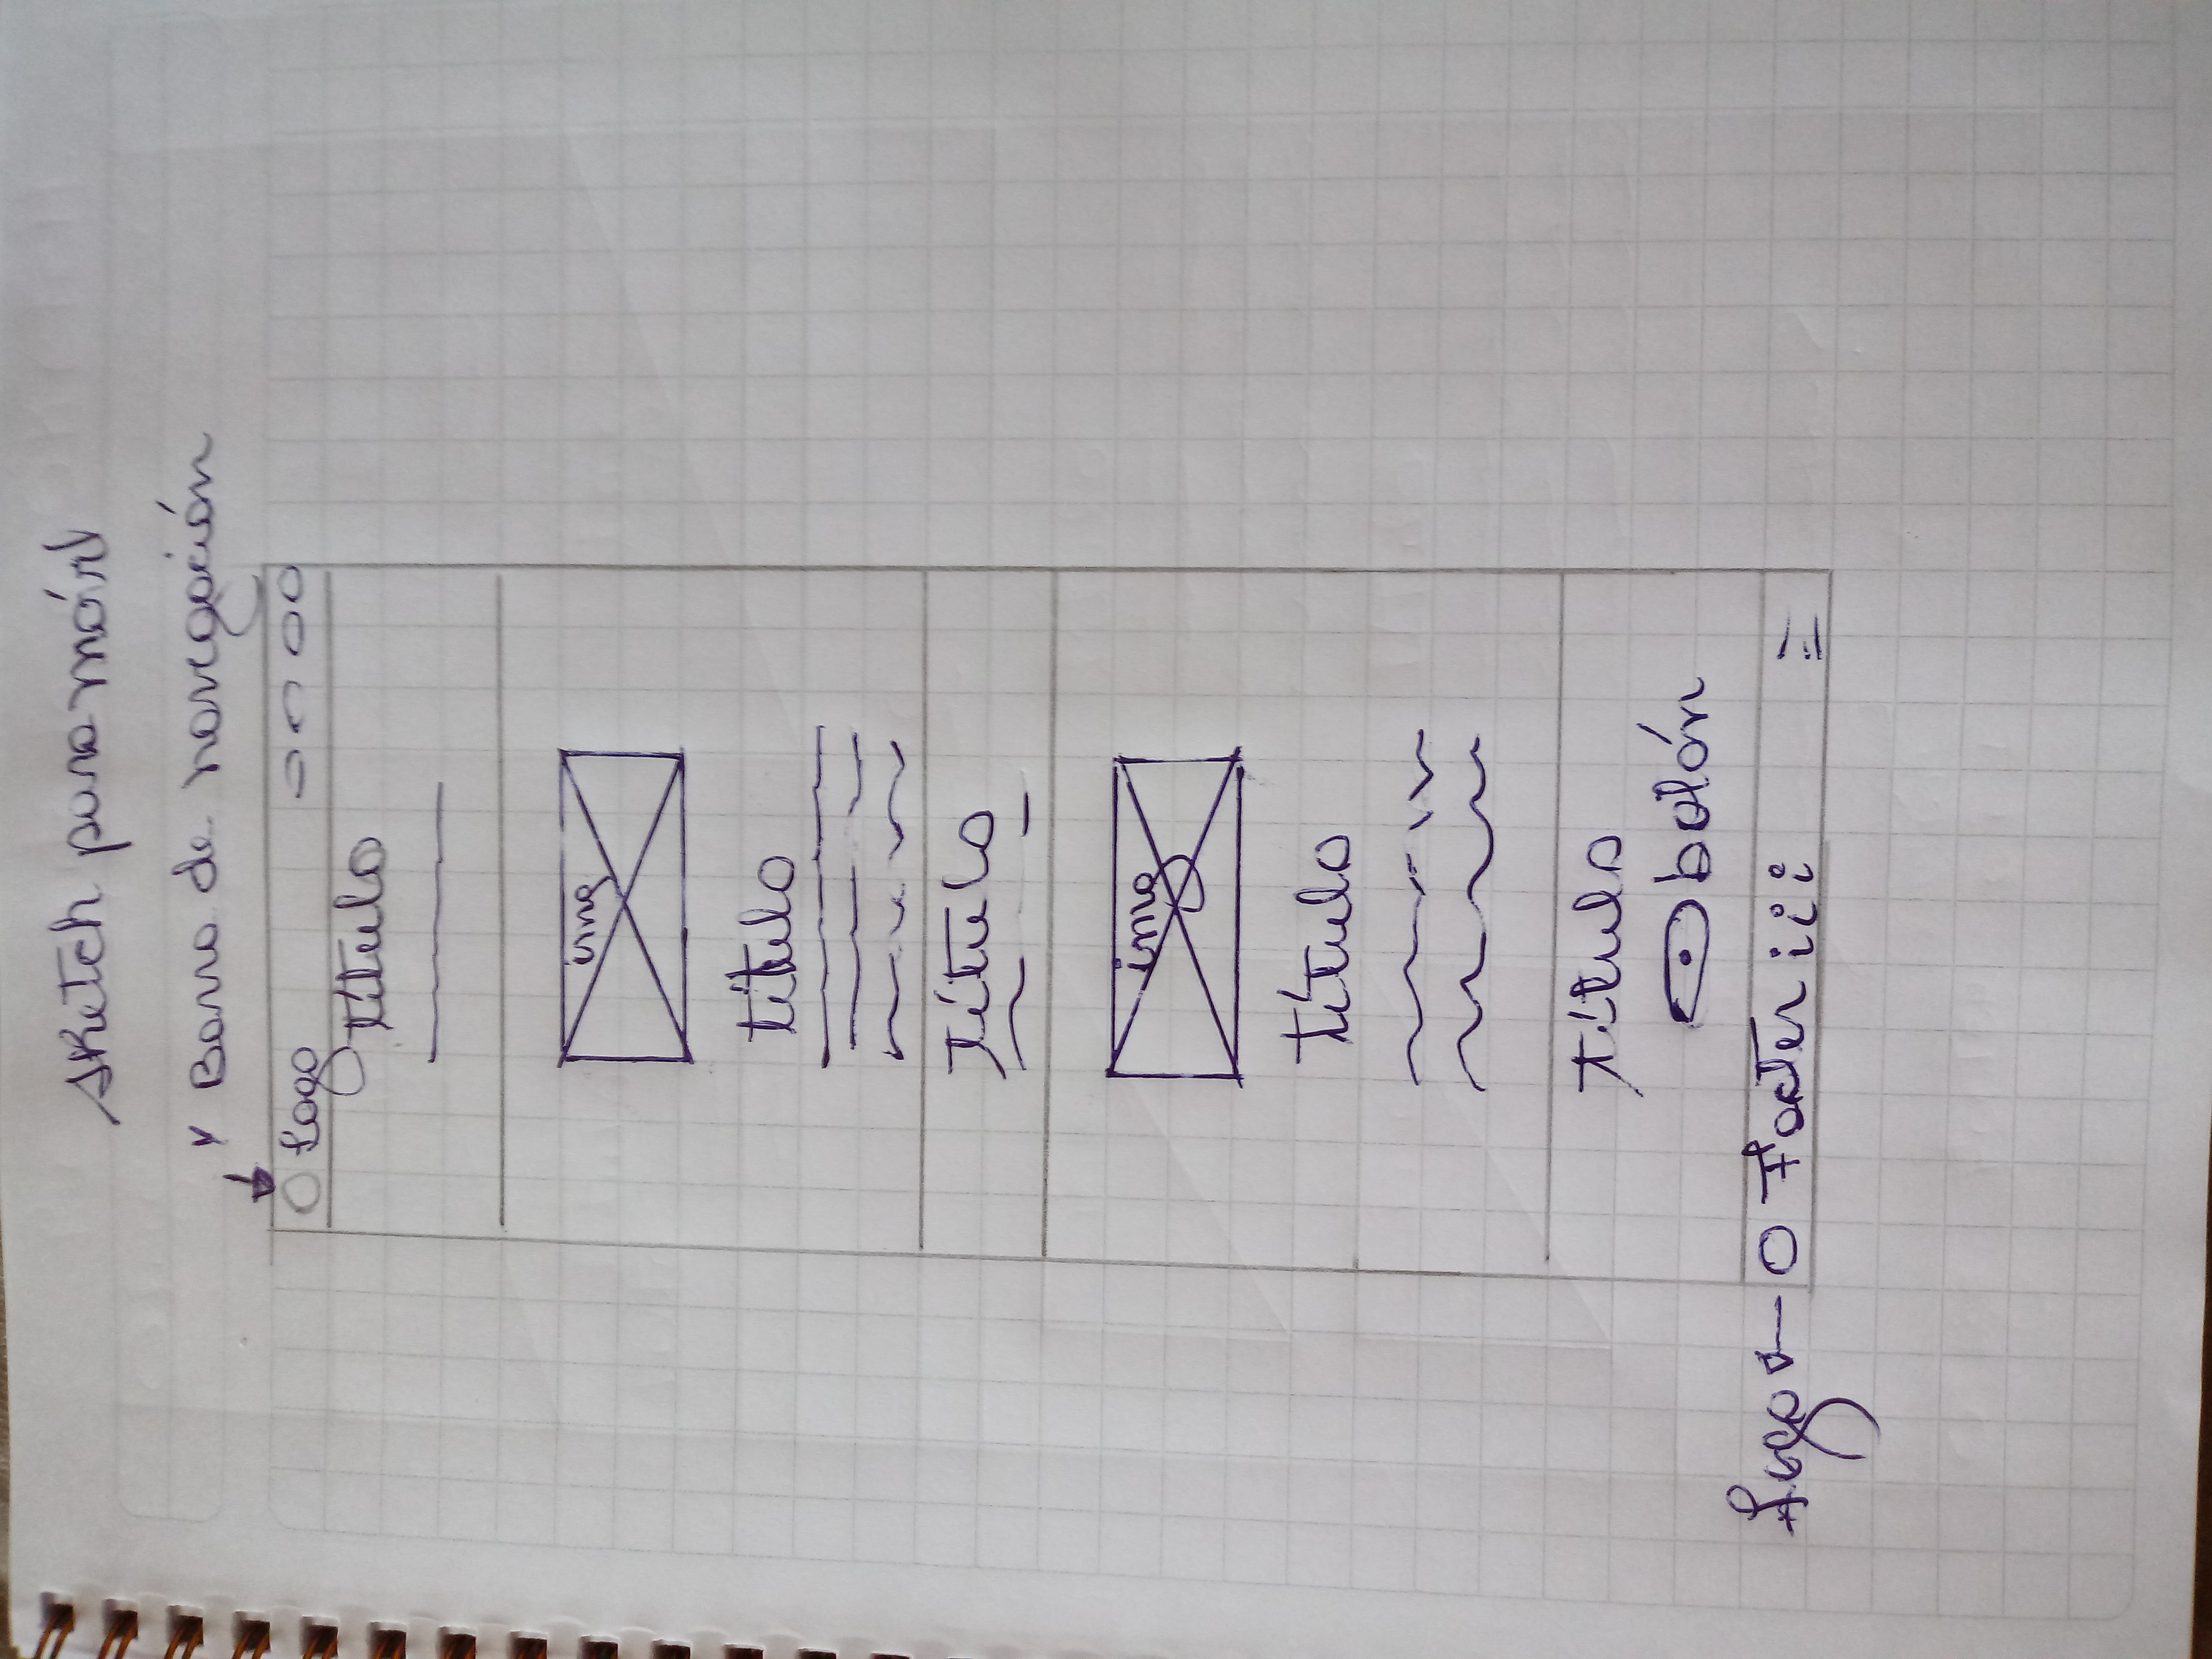 sketch para móvil
Barra de navegación
Logo
título
img
título
título
img
título
título
botón
Logo
Footer